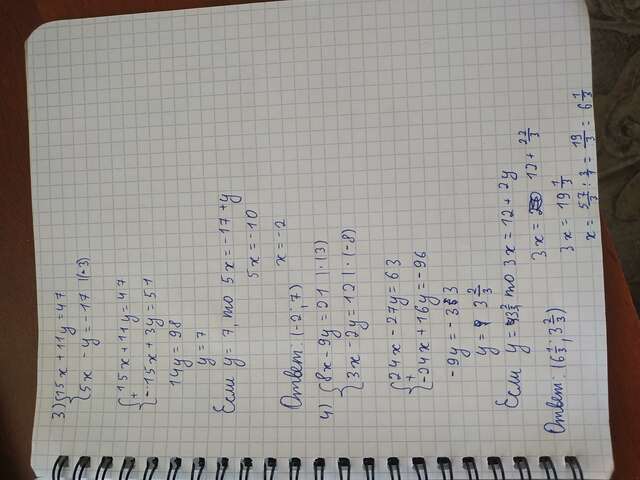 3) {15x + 11y = 47
{5x - y = -17 |(·3)
{15x + 11y = 47
+
{-15x + 3y = 51
14y = 98
y = 7
Если y = 7, то 5x = -17 + y
5x = -10
x = -2
Ответ: (-2; 7)
4) {8x - 9y = 21 | · (3)
{3x - 2y = 12 | · (-8)
{24x - 27y = 63
+
{-24x + 16y = -96
-9y = -33
y = 3 2/3
Если y = 3 2/3 то 3x = 12 + 2y
3x = 12 + 22/3
3x = 19 1/3
x = 57/3 : 3 = 19/3 = 6 1/3
Ответ: (6 1/3; 3 2/3)